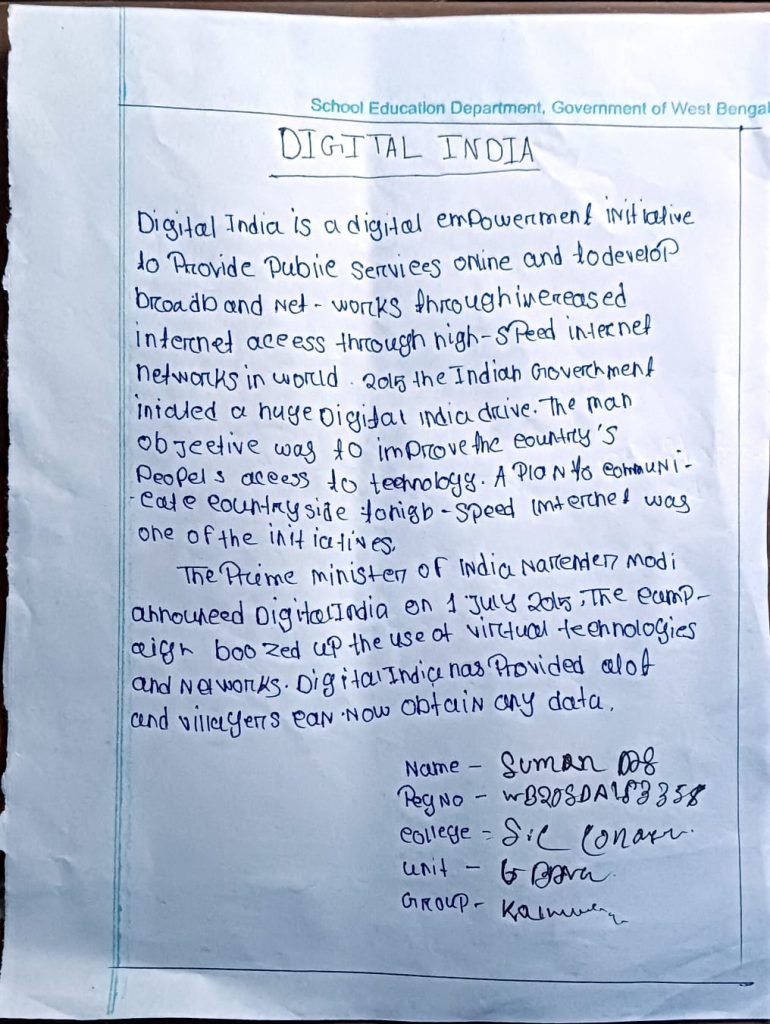 School Education Department, Government of West Bengal
DIGITAL INDIA
Digital India is a digital empowerment initiative
to Provide Public services online and to develop
broadband Net-works through increased
internet access through high-speed internet
networks in world. 2015 the Indian Government
iniated a huge Digital india drive. The man
objective was to improve the country's
Peopel s access to technology. A Plan to communi-
-cate country side to high-speed internet was
one of the initiatives.
The Prime minister of India Narender Modi
announced Digital India on 1 July 2015, The camp-
aign boozed up the use of virtual technologies
and Networks. Digital India has Provided alot
and villagers can now obtain any data.
Name - Suman Das
Reg No - WB20SDA183358
college = S.C
unit -
Group -